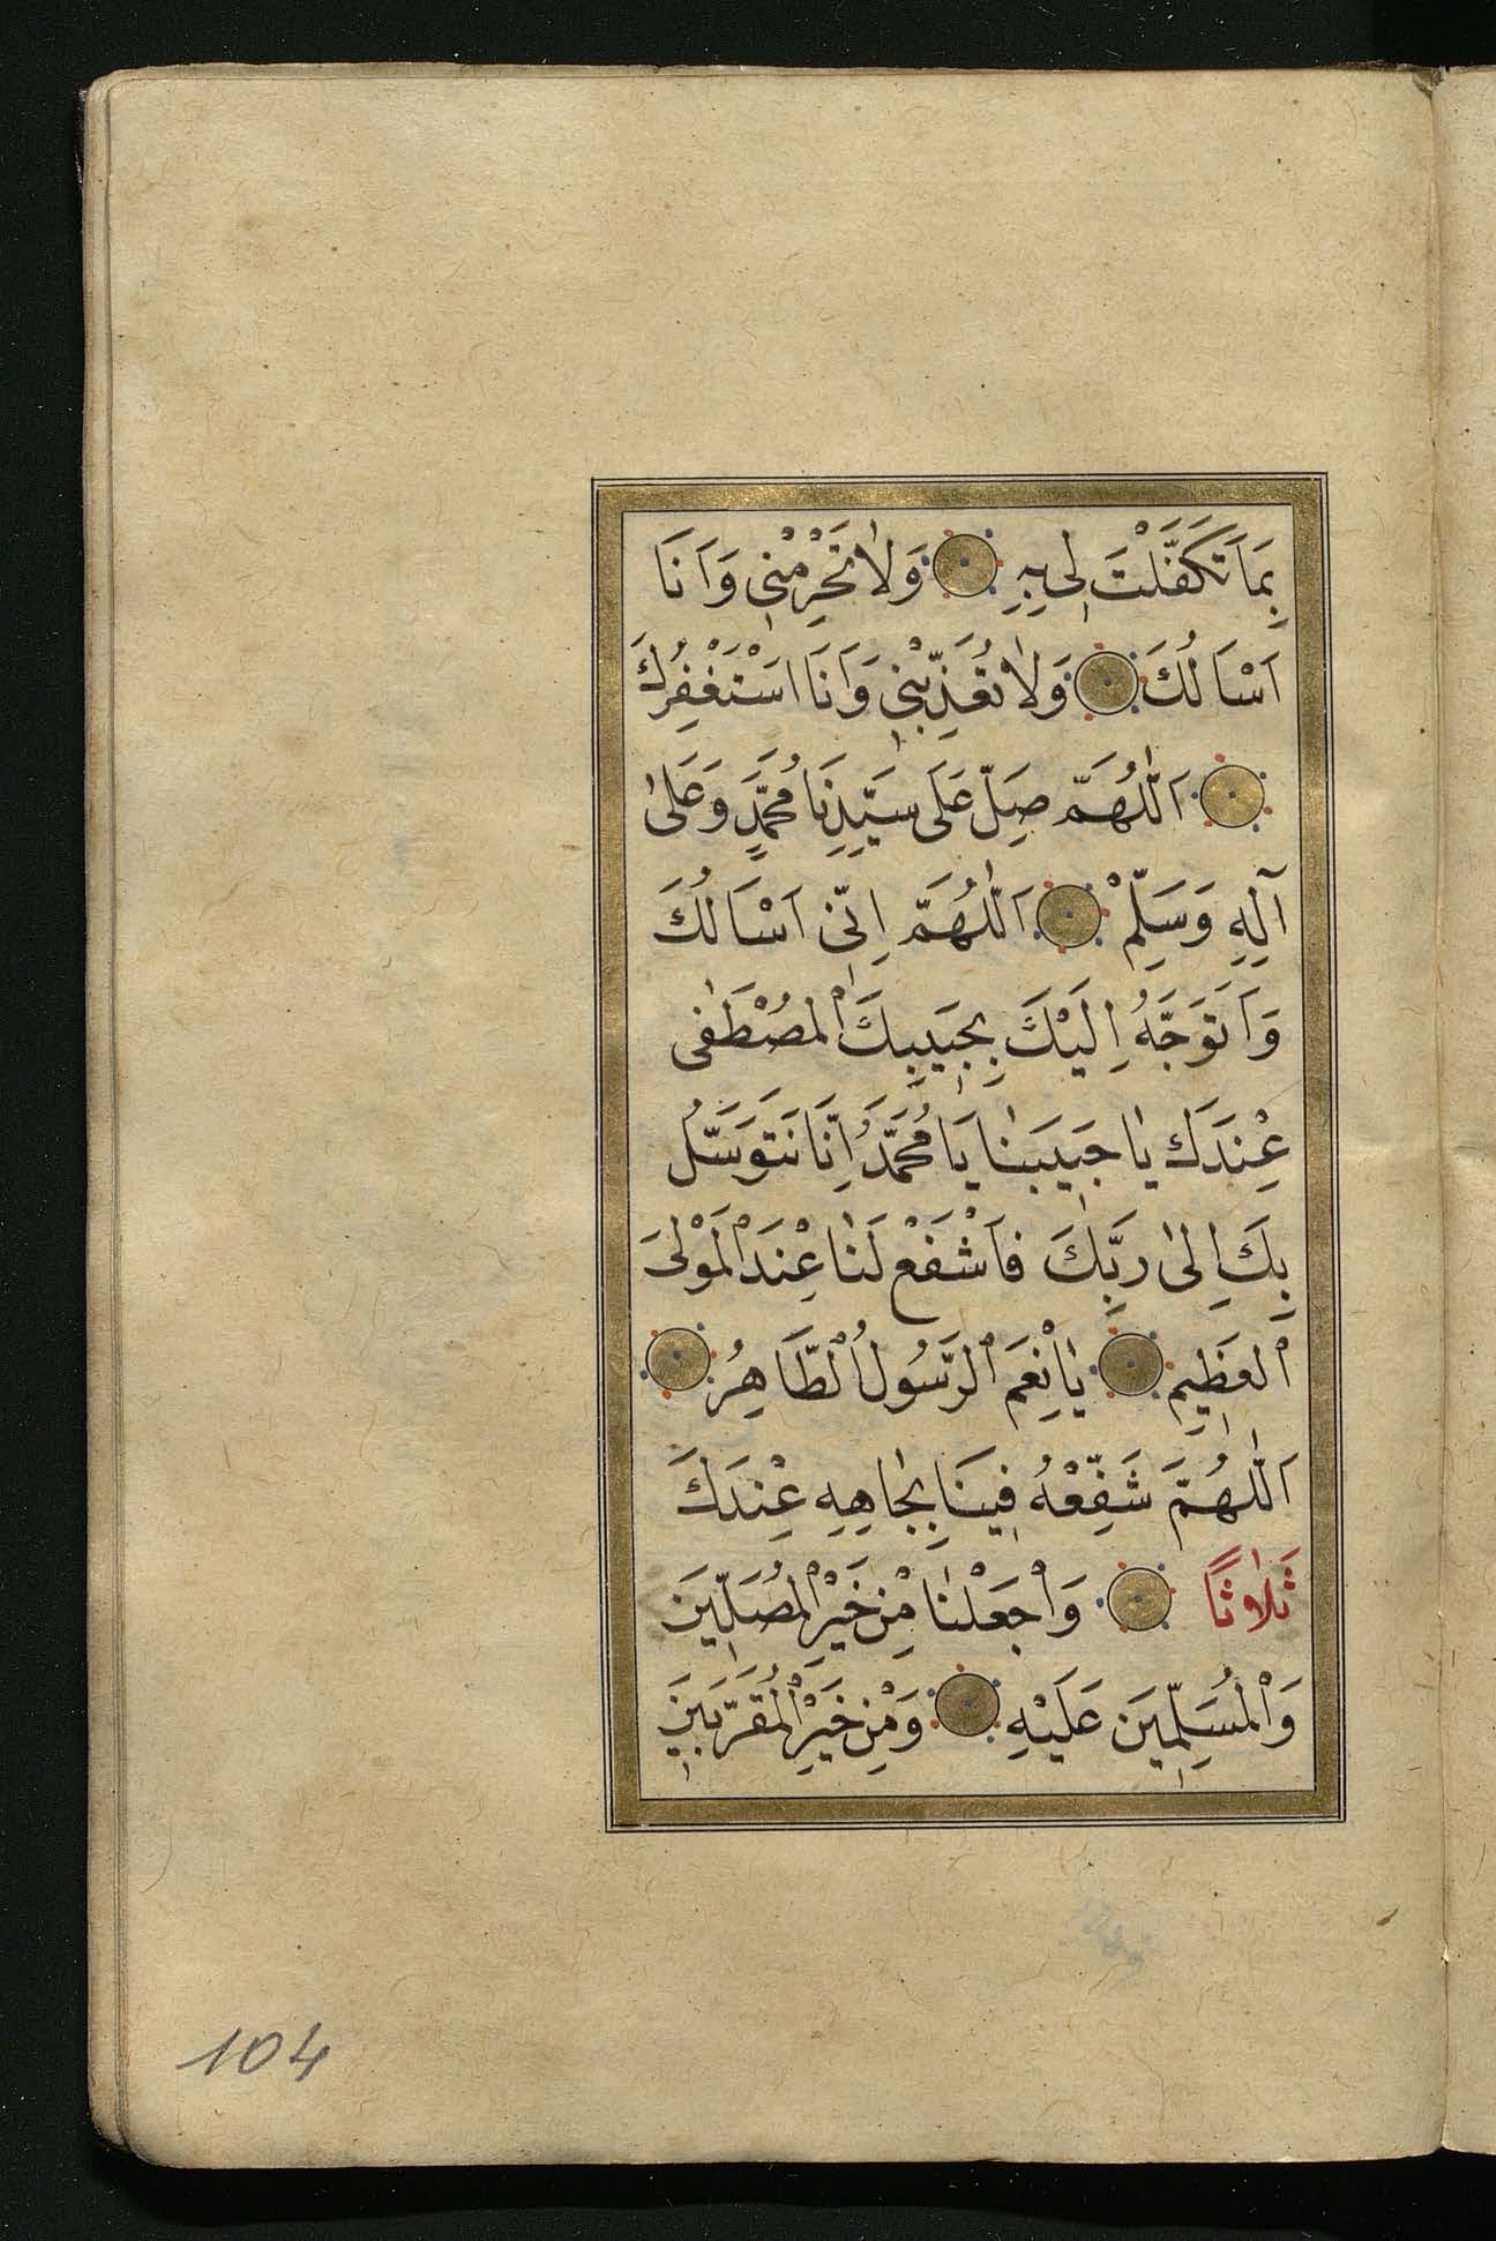 بِمَا تَكَفَّلْتَ لِي بِهِ وَلَا تَحْرِمْنِي وَاَنَا
اَسْاَلُكَ وَلَا تُعَذِّبْنِي وَاَنَا اَسْتَغْفِرُكَ
اَللّٰهُمَّ صَلِّ عَلَى سَيِّدِنَا مُحَمَّدٍ وَعَلٰى
آلِهِ وَسَلِّمْ اَللّٰهُمَّ اِنِّي اَسْاَلُكَ
وَاَتَوَجَّهُ اِلَيْكَ بِحَبِيبِكَ الْمُصْطَفٰى
عِنْدَكَ يَا حَبِيبَنَا يَا مُحَمَّدُ اِنَّا نَتَوَسَّلُ
بِكَ اِلٰى رَبِّكَ فَاشْفَعْ لَنَا عِنْدَ الْمَوْلَى
الْعَظِيمِ يَا نِعْمَ الرَّسُولُ الطَّاهِرُ
اَللّٰهُمَّ شَفِّعْهُ فِينَا بِجَاهِهِ عِنْدَكَ
ثَلَاثًا وَاجْعَلْنَا مِنْ خَيْرِ الْمُصَلِّينَ
وَالْمُسَلِّمِينَ عَلَيْهِ وَمِنْ خَيْرِ الْمُقَرَّبِينَ
104